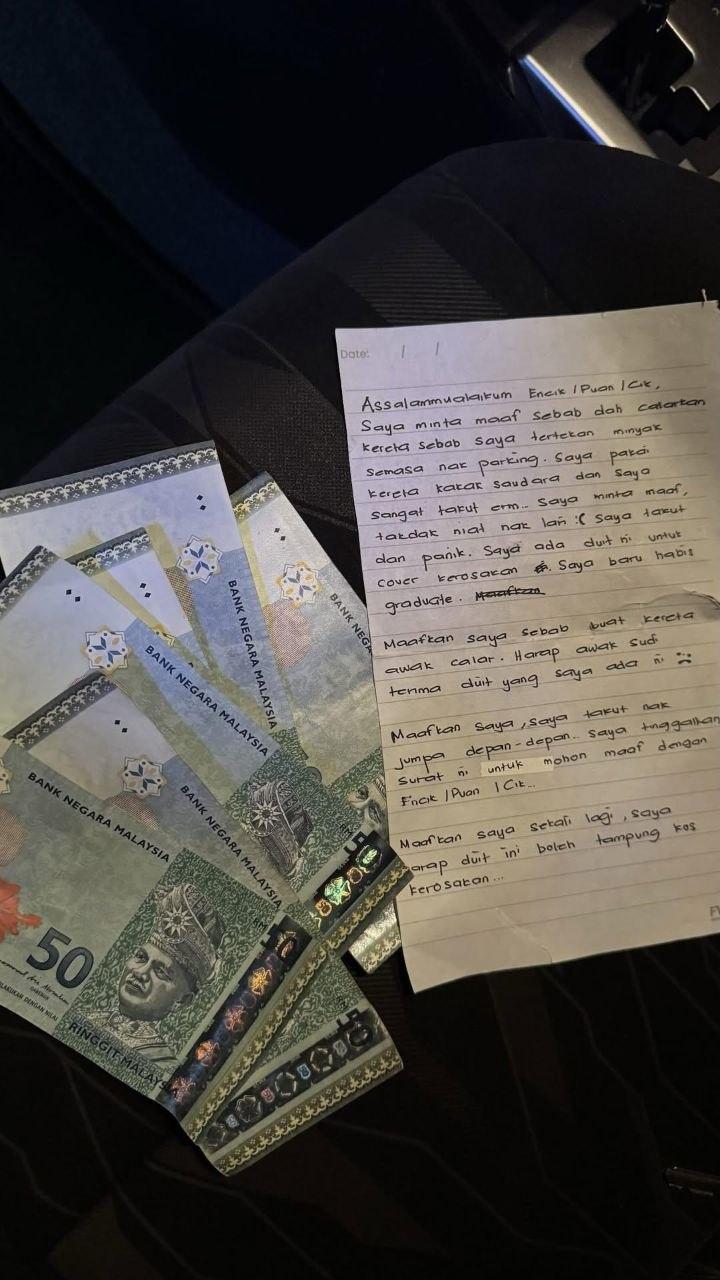 Date: / /
Assalammualaikum Encik / Puan / Cik,
Saya minta maaf sebab dah calarkan
kereta sebab saya tertekan minyak
semasa nak parking. Saya pakai
kereta kakak saudara dan saya
sangat takut erm... Saya minta maaf,
takdak niat nak lari :( saya takut
dan panik. Saya ada duit ni untuk
cover kerosakan. Saya baru habis
graduate. Maafkan
Maafkan saya sebab buat kereta
awak calar. Harap awak sudi
terima duit yang saya ada ni :(
Maafkan saya, saya takut nak
jumpa depan-depan.. saya tinggalkan
surat ni untuk mohon maaf dengan
Encik / Puan / Cik...
Maafkan saya sekali lagi, saya
arap duit ini boleh tampung kos
kerosakan...
BANK NEGARA MALAYSIA
BANK NEGA
BANK NEGARA MALAYSIA
BANK NEGARA MALAYSIA
BANK NEGARA MALAYSIA
50
RINGGIT MALAYSIA
RM
RM